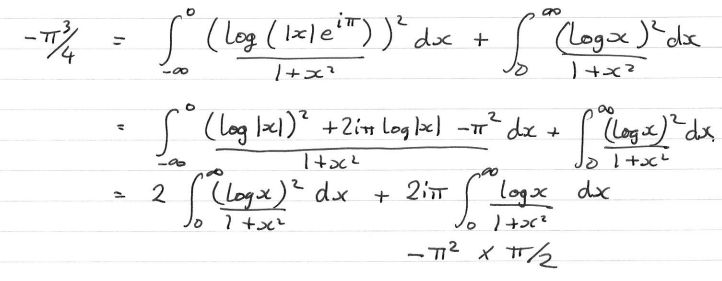 -π³/4 = ∫_{-∞}^{0} (log(|x|e^{iπ}))²/(1+x²) dx + ∫_{0}^{∞} (log x)²/(1+x²) dx
= ∫_{-∞}^{0} ((log|x|)² + 2iπ log|x| - π²)/(1+x²) dx + ∫_{0}^{∞} (log x)²/(1+x²) dx.
= 2 ∫_{0}^{∞} (log x)²/(1+x²) dx + 2iπ ∫_{0}^{∞} log x/(1+x²) dx
- π² × π/2